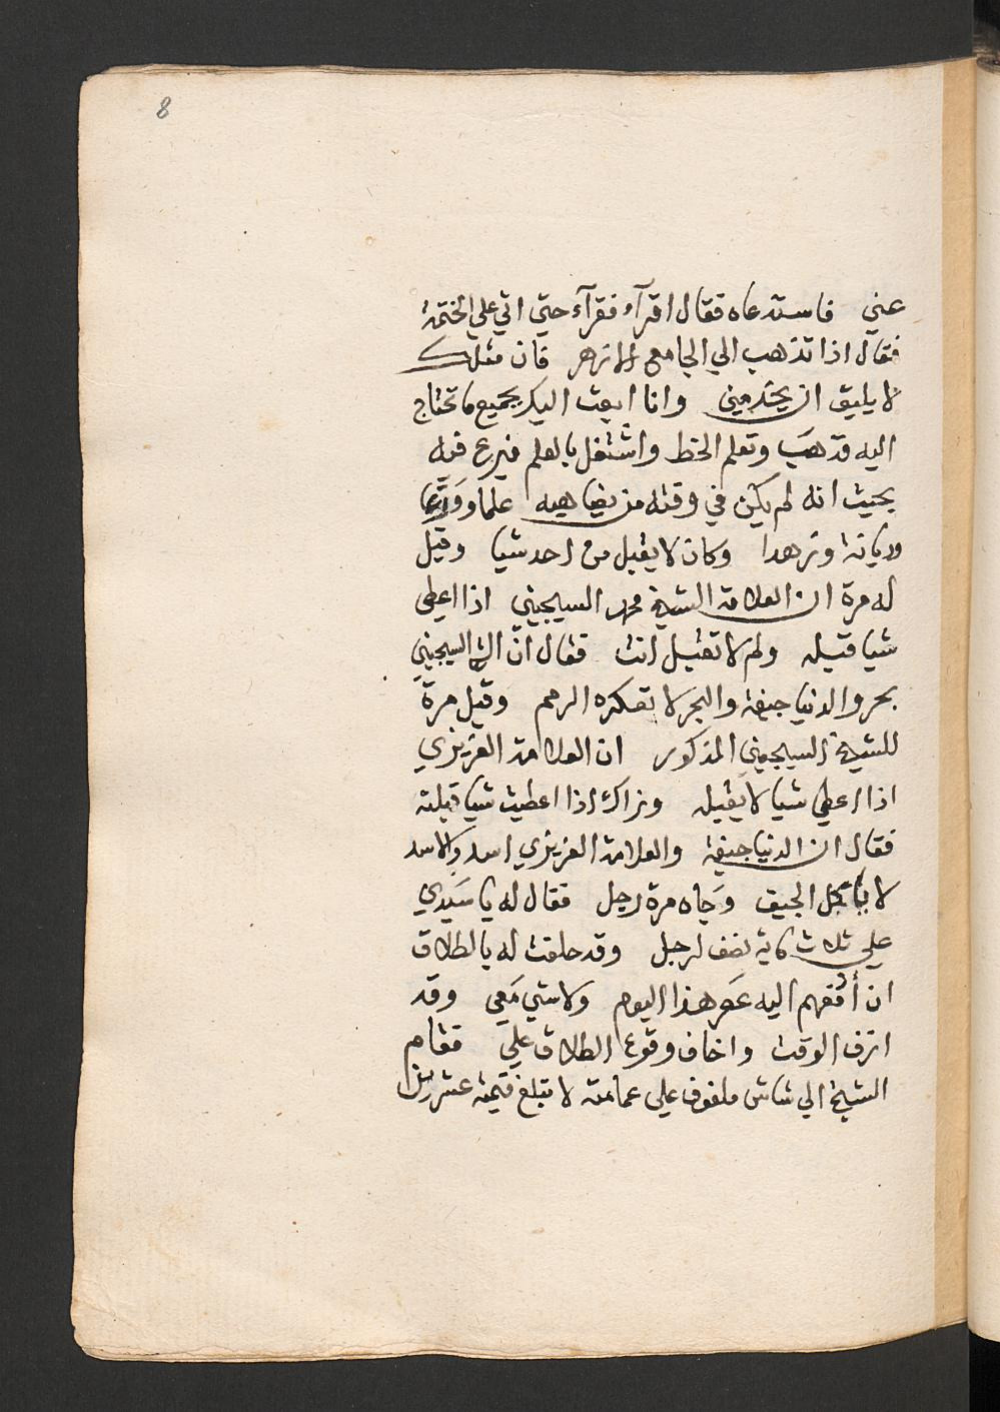 8
عني فاستدعاه فقال اقرآء فقرآء حتي اتي علي الختمة
فقال اذا تذهب الي الجامع الازهر فان مثلك
لا يليق ان يخدمني وانا ابعث اليك بجميع ما تحتاج
اليه فذهب وتعلم الخط واشتغل بالعلم فبرع فيه
بحيث انه لم يكن في وقته من يضاهيه علما وورعا
وديانة وزهدا وكان لا يقبل من احد شيا وقيل
له مرة ان العلامة الشيخ محمد السيجيني اذا اعطي
شيا قبله ولم لا تقبل انت فقال ان الش السيجيني
بحر والدنيا جيفة والبحر لا تعكره الرمم وقيل مرة
للشيخ السيجيني المذكور ان العلامة العزيزي
اذا اعطي شيا لا يقبله ونراك اذا اعطيت شيا قبلته
فقال ان الدنيا جيفة والعلامة العزيزي اسد والاسد
لا يأكل الجيف وجاه مرة رجل فقال له يا سيدي
علي ثلاث ماية نصف لرجل وقد حلفت له بالطلاق
ان أدفعهم اليه عصر هذا اليوم ولا شي معي وقد
ازف الوقت واخاف وقوع الطلاق علي فقام
الشيخ الي شاش ملفوف علي عمامته لا تبلغ قيمته عشرين